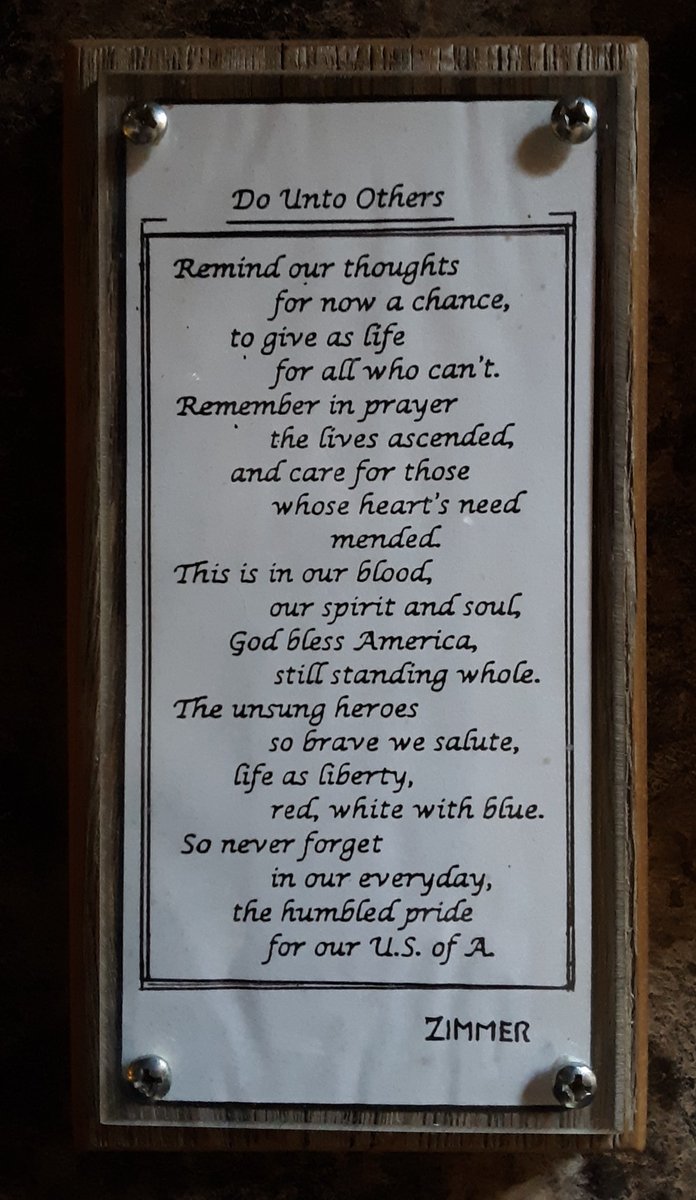 Do Unto Others
Remind our thoughts
for now a chance,
to give as life
for all who can't.
Remember in prayer
the lives ascended,
and care for those
whose heart's need
mended.
This is in our blood,
our spirit and soul,
God bless America,
still standing whole.
The unsung heroes
so brave we salute,
life as liberty,
red, white with blue.
So never forget
in our everyday,
the humbled pride
for our U.S. of A.
ZIMMER